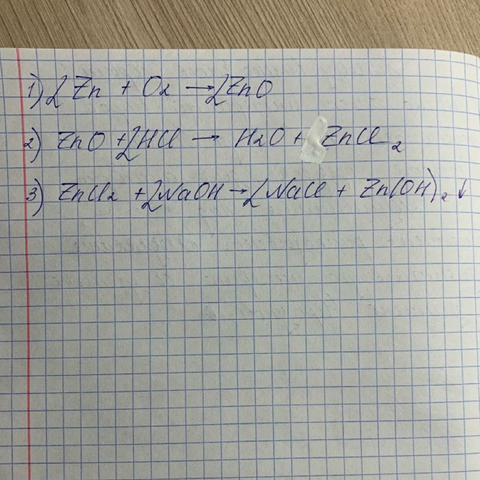 1) 2Zn + O2 → 2ZnO
2) ZnO + 2HCl → H2O + ZnCl2
3) ZnCl2 + 2NaOH → 2NaCl + Zn(OH)2↓